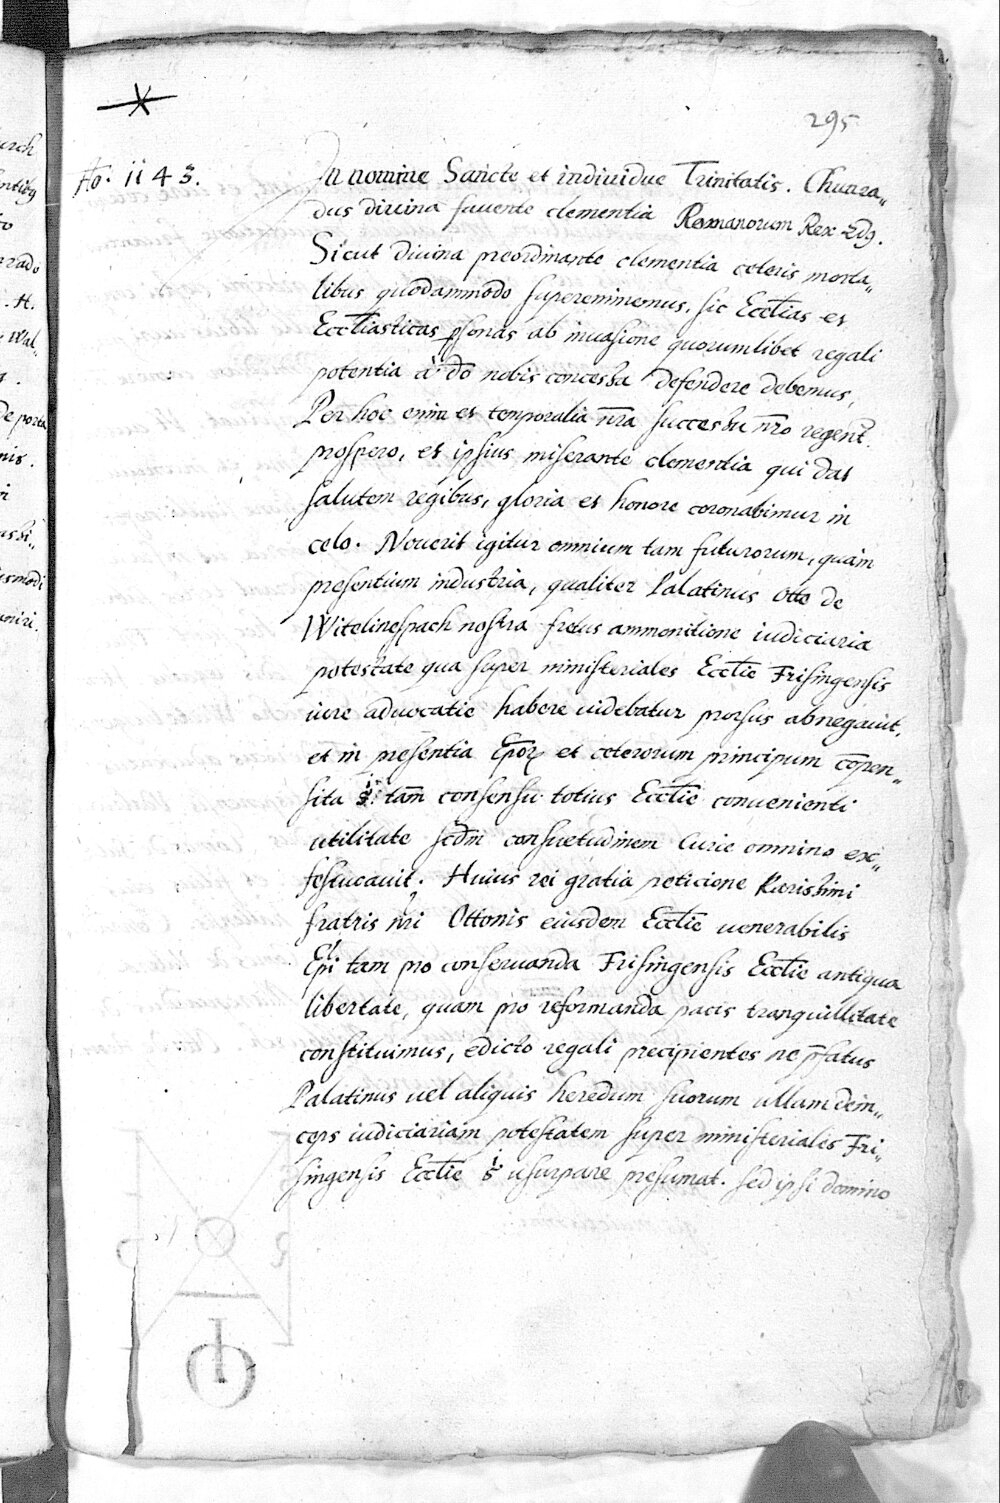 295
Ao. 1143.
In nomine Sancte et individue Trinitatis. Chunra„
dus divina favente clementia Romanorum Rex 2dg.
Sicut divina preordinante clementia ceteris morta„
libus quodammodo supereminemus, sic Ecclias et
Eccliasticas psonas ab invasione quorumlibet regali
potentia à do nobis concessa defendere debemus,
Per hoc enim et temporalia nra successu nro regent
prospero, et ipsius miserante clementia qui dat
salutem regibus, gloria et honore coronabimur in
celo. Noverit igitur omnium tam futurorum, quam
presentium industria, qualiter Palatinus Otto de
Witelinespach nostra fretus ammonitione iudiciaria
potestate qua super ministeriales Ecclie Frisingensis
iure advocatie habere uidebatur prorsus abnegauit,
et in presentia Epor et ceterorum principum copen„
sita tam consensu totius Ecclie convenienti
utilitate scdm consuetudinem Curie omnino ex„
festucavit. Huius rei gratia peticione Karissimi
fratris nri Ottonis eiusdem Ecclie uenerabilis
Epi tam pro conservanda Frisingensis Ecclie antiqua
libertate, quam pro reformanda pacis tranquillitate
constituimus, edicto regali precipientes ne pfatus
Palatinus uel aliquis heredum suorum ullam dein„
ceps iudiciariam potestatem super ministeriales Fri„
singensis Ecclie usurpare presumat. sed ipsi domino